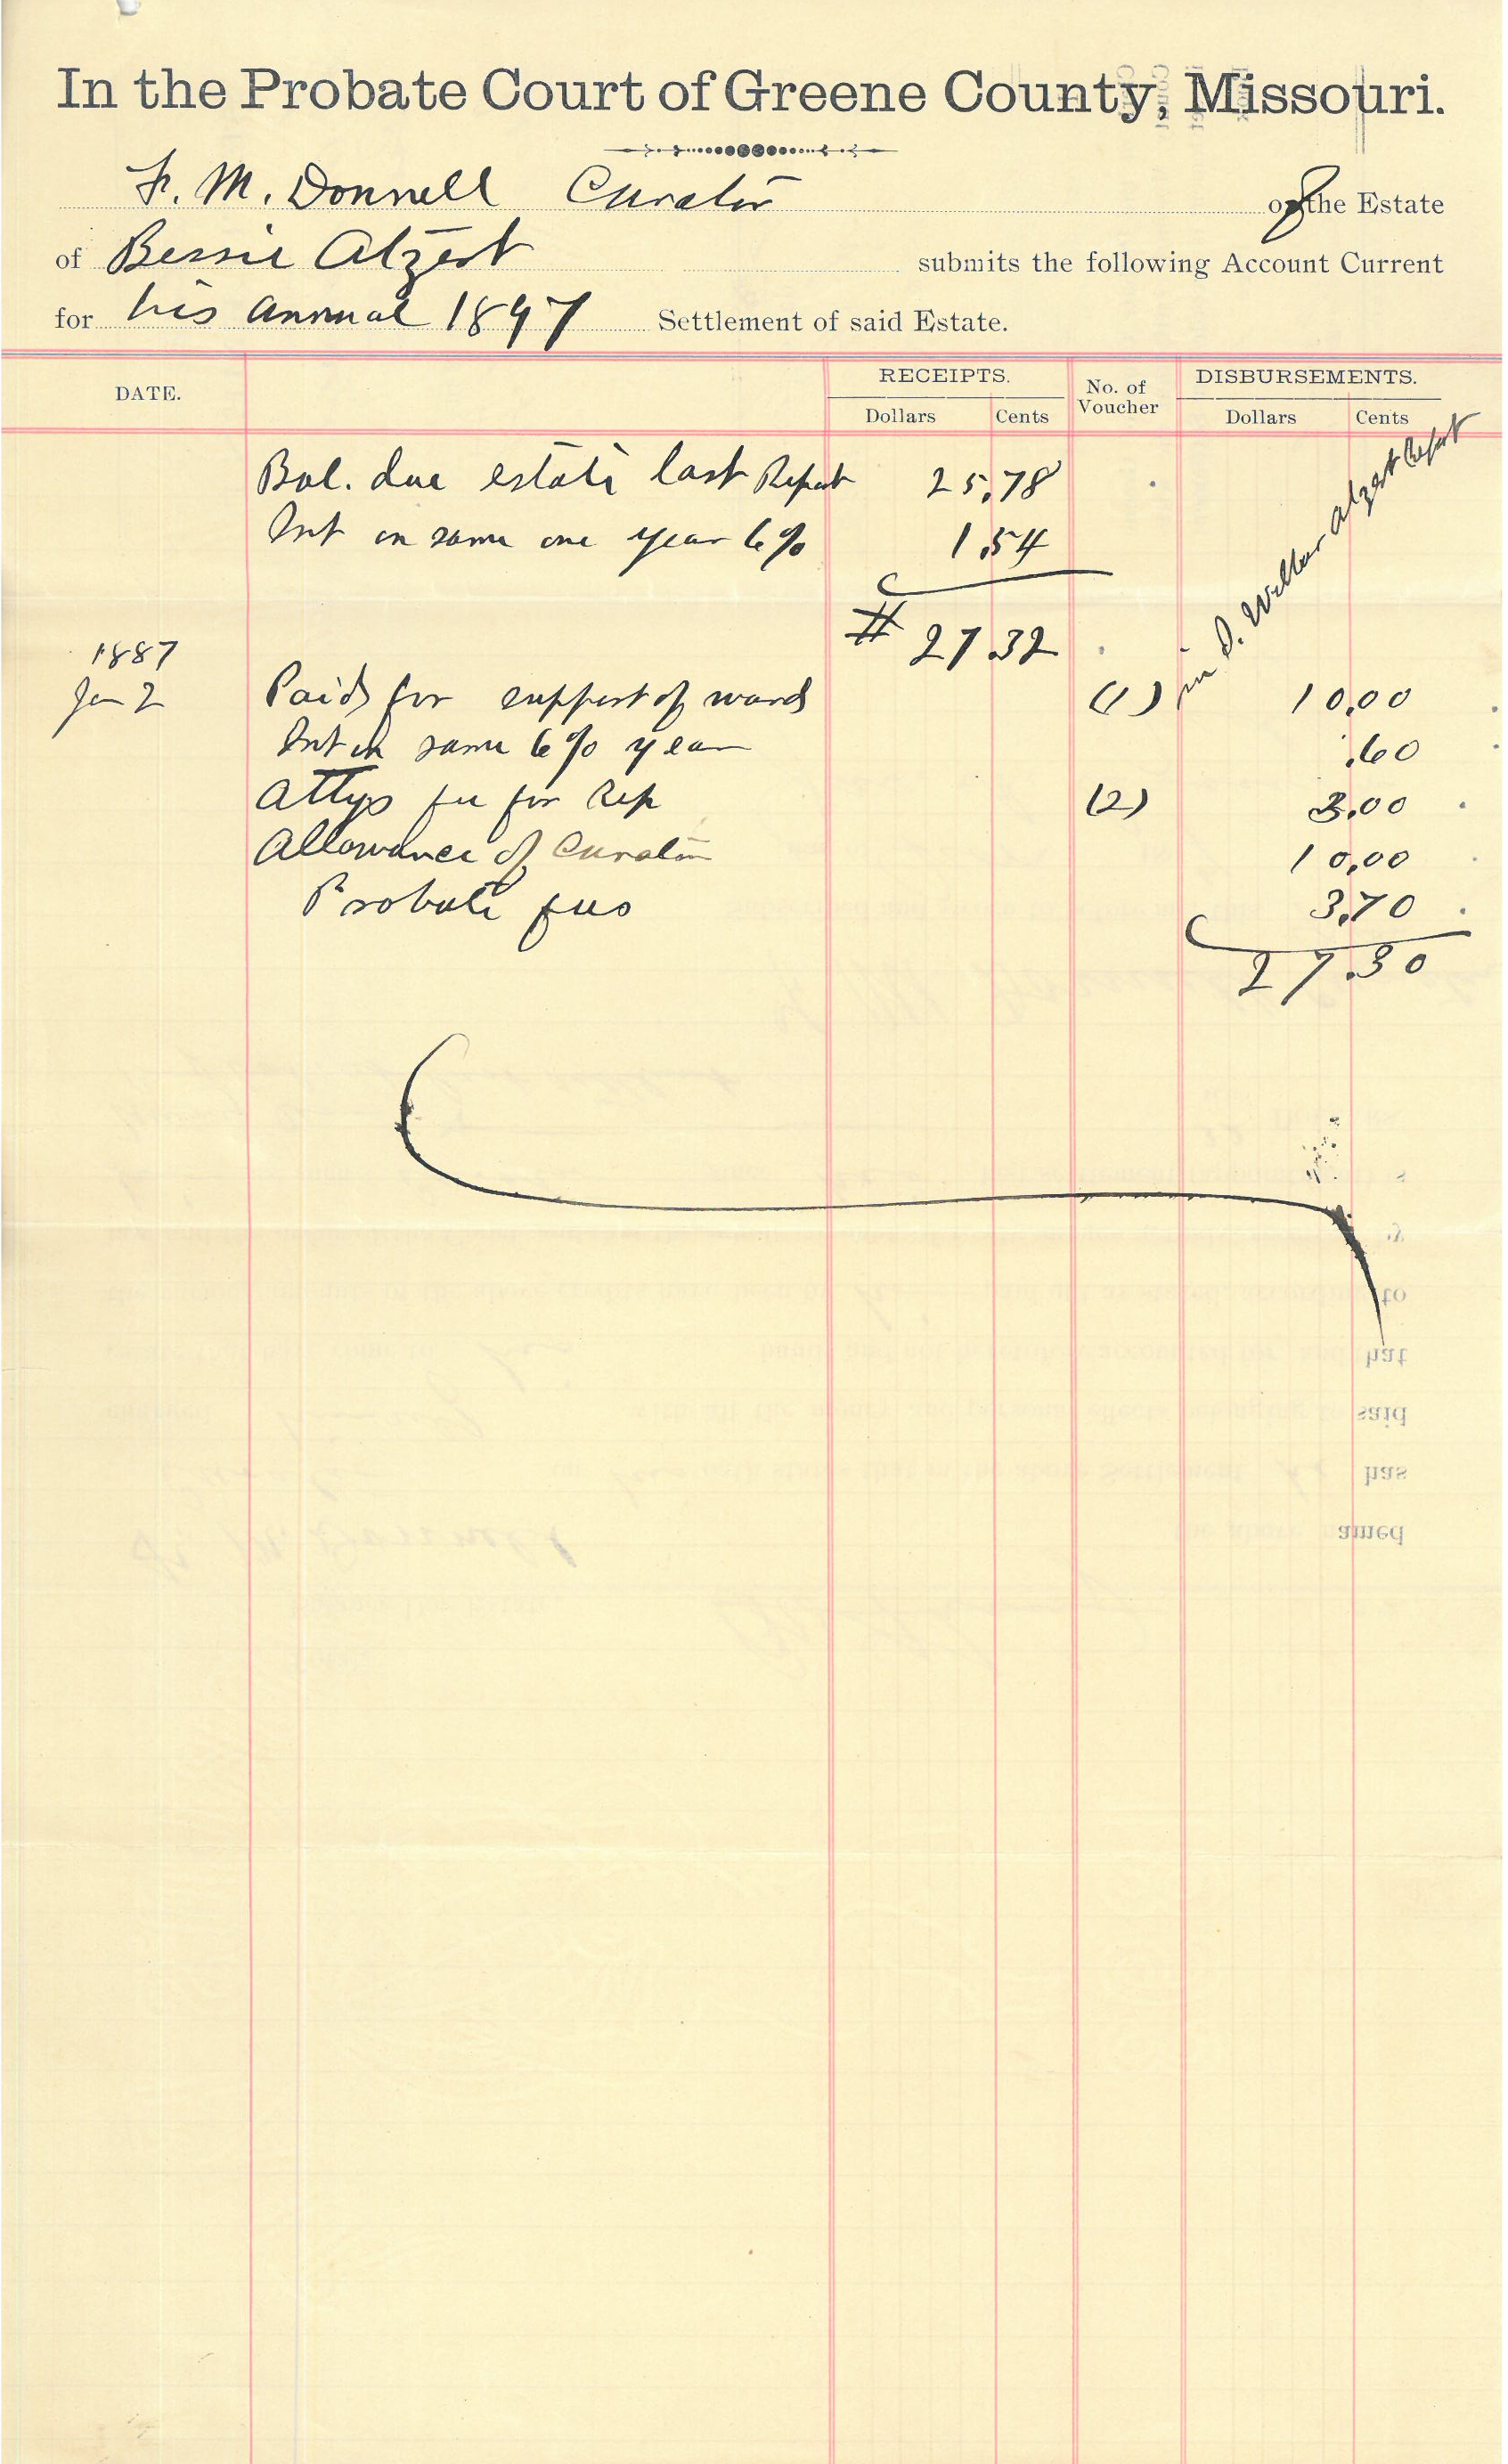 In the Probate Court of Greene County, Missouri.
F. M. Donnell Curator of the Estate
of Bessie Alzert submits the following Account Current
for his annual 1897 Settlement of said Estate.
DATE. RECEIPTS. No. of Voucher DISBURSEMENTS.
Dollars Cents Dollars Cents
Bal. due estate last Report 25,78
Int on same one year 6% 1,54
# 27.32
in D. Wilbur Alzert Report
1887
Jan 2 Paid for support of ward (1) 10,00
Int on same 6% year .60
Attys fee for Rep (2) 3,00
Allowance of Curator 10,00
Probate fees 3,70
27.30
to
hat
said
has
amed